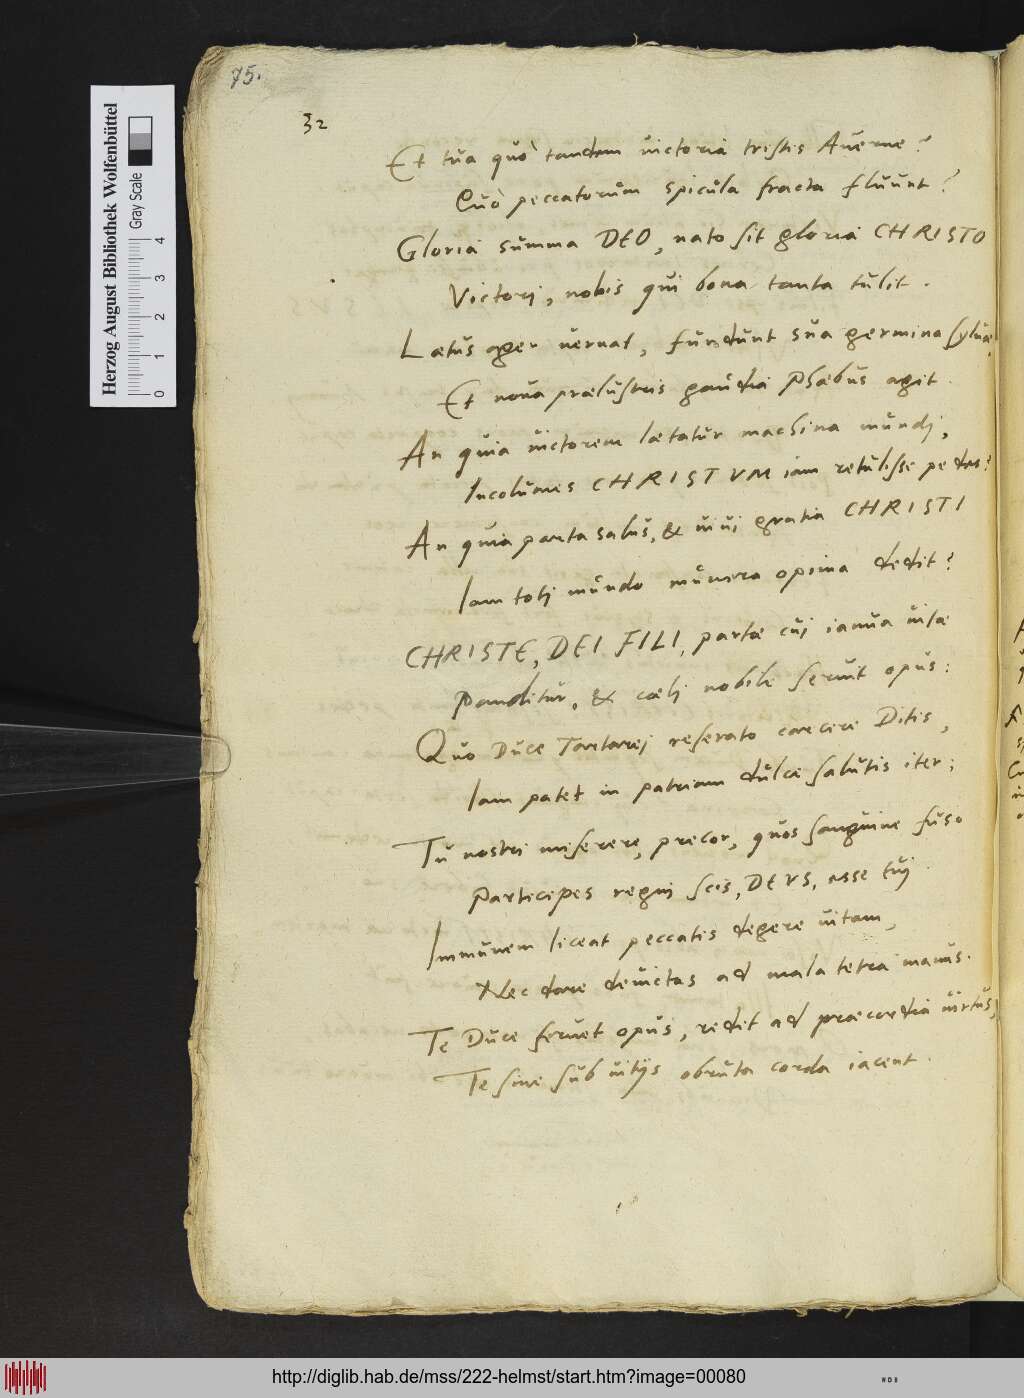 75.
32
Et tua quò tandem uictoria tristis Auerne?
Quò peccatorum spicula fracta fluunt?
Gloria summa DEO, nato sit gloria CHRISTO
Victori, nobis qui bona tanta tulit.
Lætus ager uernat, fundunt sua germina syluæ,
Et noua prælustris gaudia Phæbus agit.
An quia uictorem lætatur machina mundj,
Incolumes CHRISTVM iam retulisse pedes?
An quia parta salus, & uiui gratia CHRISTI
Iam totj mundo munera opima dedit?
CHRISTE, DEI FILI, partæ cuj ianua uitæ
Panditur, & cælj nobile seruit opus:
Quo Duce Tartarej reserato carcere Ditis,
Iam patet in patriam dulce salutis iter;
Tu nostri miserere, precor, quos sanguine fuso
Participes regnj scis, DEVS, esse tuj.
Immunem liceat peccatis degere uitam,
Nec dare deuictas ad mala tetra manus.
Te Duce feruet opus, redit ad præcordia uirtus,
Te sine sub uitijs obruta corda iacent.
Herzog August Bibliothek Wolfenbüttel
Gray Scale
0 1 2 3 4
http://diglib.hab.de/mss/222-helmst/start.htm?image=00080